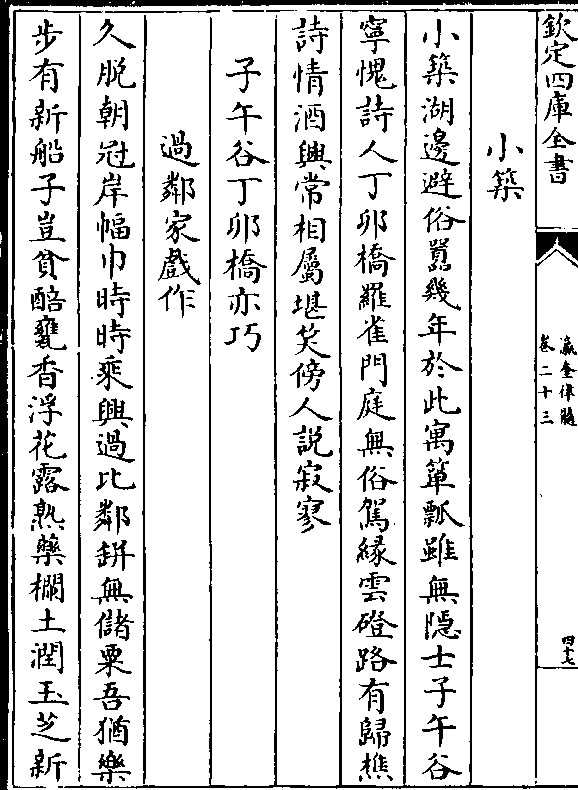 欽定四庫全書
瀛奎律髓
卷二十三
四十七
小築
小築湖邊避俗囂幾年於此寓簞瓢雖無隱士子午谷
寧愧詩人丁卯橋羅雀門庭無俗駕緣雲磴路有歸樵
詩情酒興常相屬堪笑傍人說寂寥
子午谷丁卯橋亦巧
過鄰家戲作
久脫朝冠岸幅巾時時乘興過比鄰缾無儲粟吾猶樂
步有新船子豈貧醅甕香浮花露熟藥欄土潤玉芝新